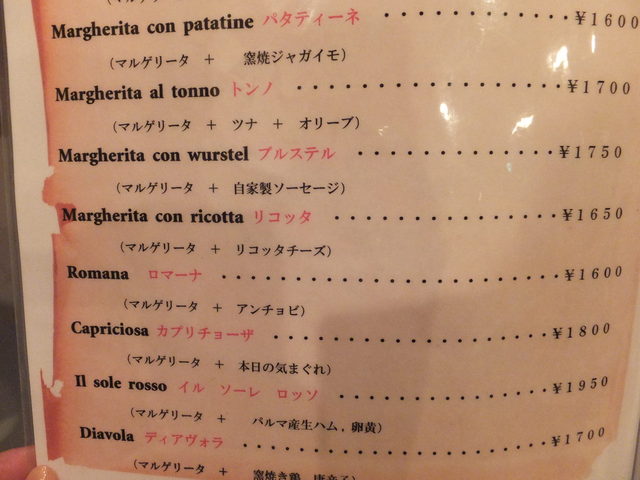 Margherita con patatine パタティーネ ・・・・・・・・・・・・・ ¥1600
(マルゲリータ + 窯焼ジャガイモ)
Margherita al tonno トンノ ・・・・・・・・・・・・・・・・・・ ¥1700
(マルゲリータ + ツナ + オリーブ)
Margherita con wurstel ブルステル ・・・・・・・・・・・・・ ¥1750
(マルゲリータ + 自家製ソーセージ)
Margherita con ricotta リコッタ ・・・・・・・・・・・・・・・ ¥1650
(マルゲリータ + リコッタチーズ)
Romana ロマーナ ・・・・・・・・・・・・・・・・・・・・・・・ ¥1600
(マルゲリータ + アンチョビ)
Capricciosa カプリチョーザ ・・・・・・・・・・・・・・・・・・・・ ¥1800
(マルゲリータ + 本日の気まぐれ)
Il sole rosso イル ソーレ ロッソ ・・・・・・・・・・・・・・ ¥1950
(マルゲリータ + パルマ産生ハム, 卵黄)
Diavola ディアヴォラ ・・・・・・・・・・・・・・・・・・・・・ ¥1700
(マルゲリータ + 窯焼き鶏